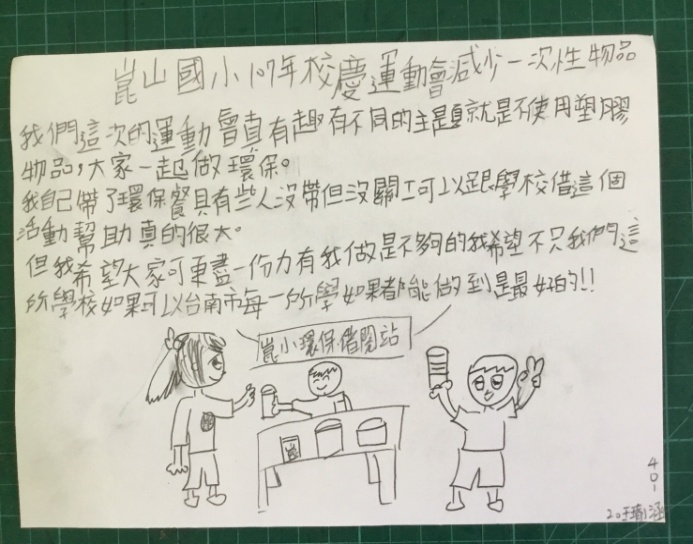 崑山國小107年校慶運動會減少一次性物品
我們這次的運動會真有趣有不同的主題就是不使用塑膠
物品，大家一起做環保。
我自己帶了環保餐具有些人沒帶但沒關工可以跟學校借這個
活動幫助真的很大。
但我希望大家可更盡一份力有我做是不夠的我希望不只我們這
所學校如果可以台南市每一所學如果都能做到是最好的!!
崑小環保借閱站
401
20